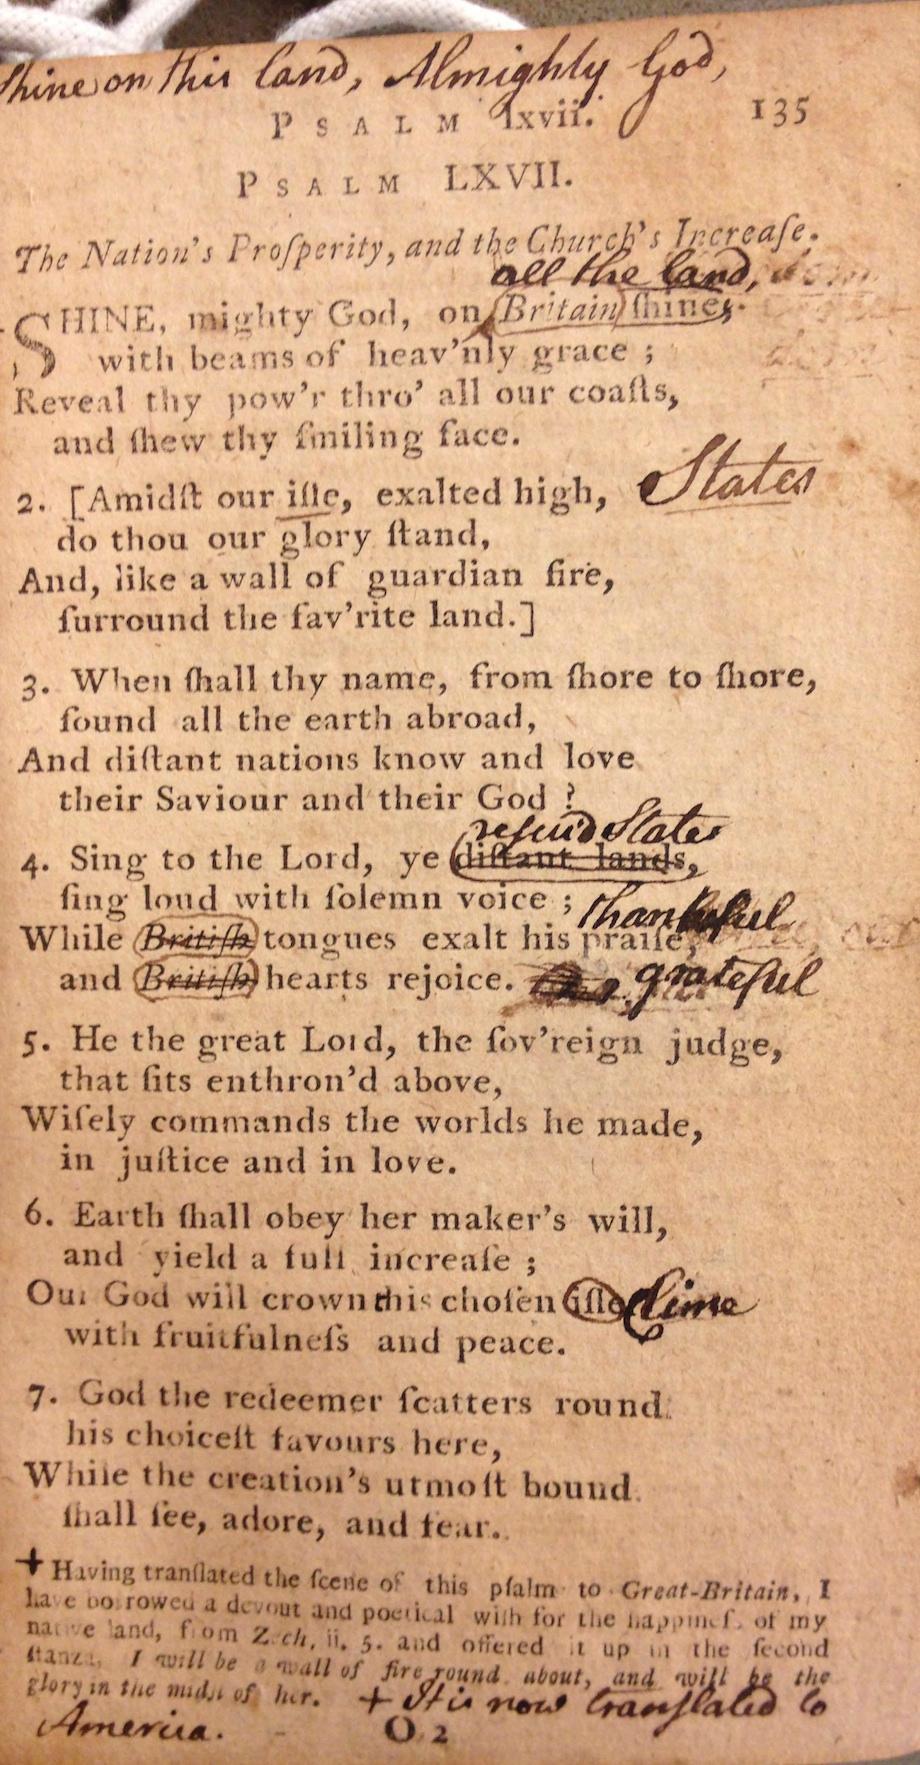 Shine on this land, Almighty God,
PSALM lxvii. 135
PSALM LXVII.
The Nation's Proſperity, and the Church's Increaſe.
all the land,
SHINE, mighty God, on Britain ſhine,
with beams of heav'nly grace ;
Reveal thy pow'r thro' all our coaſts,
and ſhew thy ſmiling face.
2. [Amidſt our iſle, exalted high, States
do thou our glory ſtand,
And, like a wall of guardian fire,
ſurround the fav'rite land.]
3. When ſhall thy name, from ſhore to ſhore,
ſound all the earth abroad,
And diſtant nations know and love
their Saviour and their God ?
rescu'd States
4. Sing to the Lord, ye diſtant lands,
ſing loud with ſolemn voice ;
thankful
While Britiſh tongues exalt his praiſe,
and Britiſh hearts rejoice. grateful
5. He the great Lord, the ſov'reign judge,
that ſits enthron'd above,
Wiſely commands the worlds he made,
in juſtice and in love.
6. Earth ſhall obey her maker's will,
and yield a full increaſe ;
Our God will crown this choſen iſle Clime
with fruitfulneſs and peace.
7. God the redeemer ſcatters round
his choiceſt favours here,
While the creation's utmoſt bound
ſhall ſee, adore, and fear.
+ Having tranſlated the ſcene of this pſalm to Great-Britain, I
have borrowed a devout and poetical wiſh for the happineſs of my
native land, from Zech. ii. 5. and offered it up in the ſecond
ſtanza, I will be a wall of fire round about, and will be the
glory in the midſt of her. + It is now tranſlated to
America. O 2